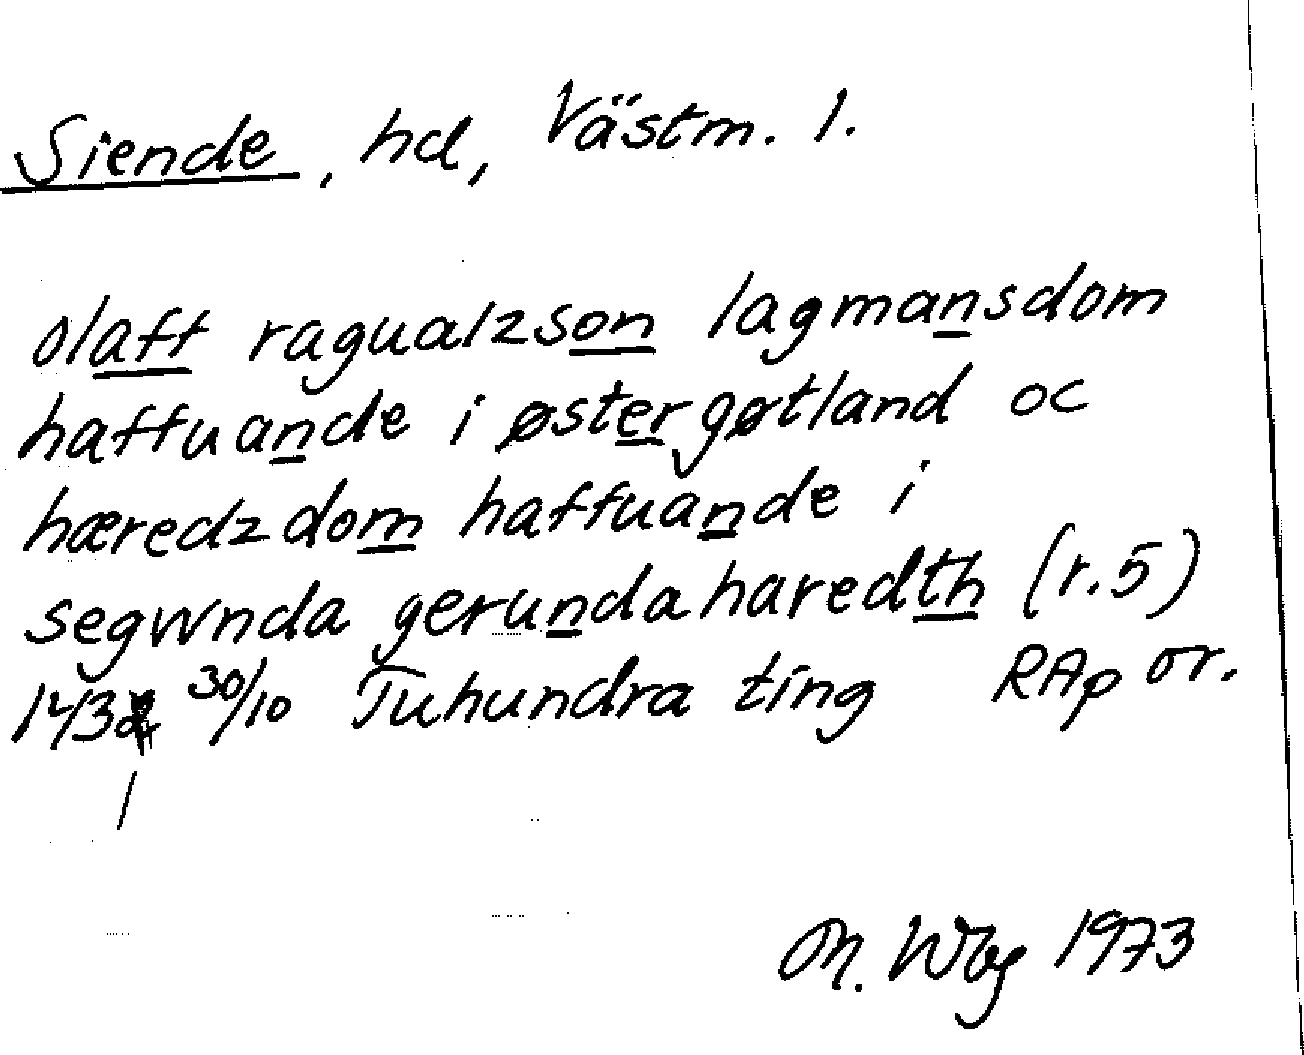 Siende, hd, Västm. l.
olaff ragualzson lagmansdom
haffuande i østergøtland oc
hæredzdom haffuande i
segwnda gerundaharedth (r. 5)
30/10 Tuhundra ting RAp or.
M. Wbg 1973